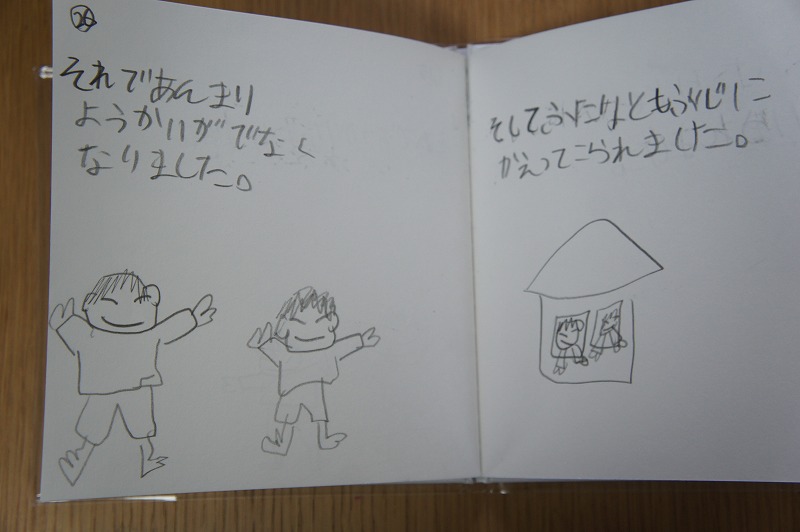 それであんまり
ようかいがでなく
なりました。
そしてふたりともぶじに
かえってこられました。